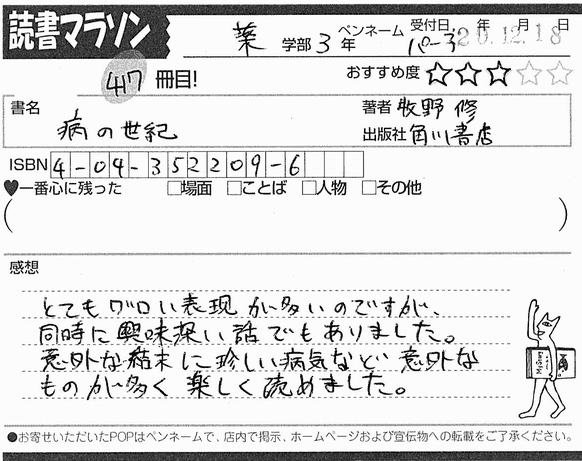 読書マラソン
薬 学部 3 年 ペンネーム パーヌ 受付日 20.12.18 年 月 日
417 冊目!
おすすめ度 ★★★☆☆
書名 病の世紀
著者 牧野 修
出版社 角川書店
ISBN 4-04-352209-6
♥一番心に残った □場面 □ことば □人物 □その他
( )
感想
とてもグロい表現が多いのですが、
同時に興味深い話でもありました。
意外な結末に珍しい病気など意外な
ものが多く楽しく読めました。
●お寄せいただいたPOPはペンネームで、店内で掲示、ホームページおよび宣伝物への転載をご了承ください。